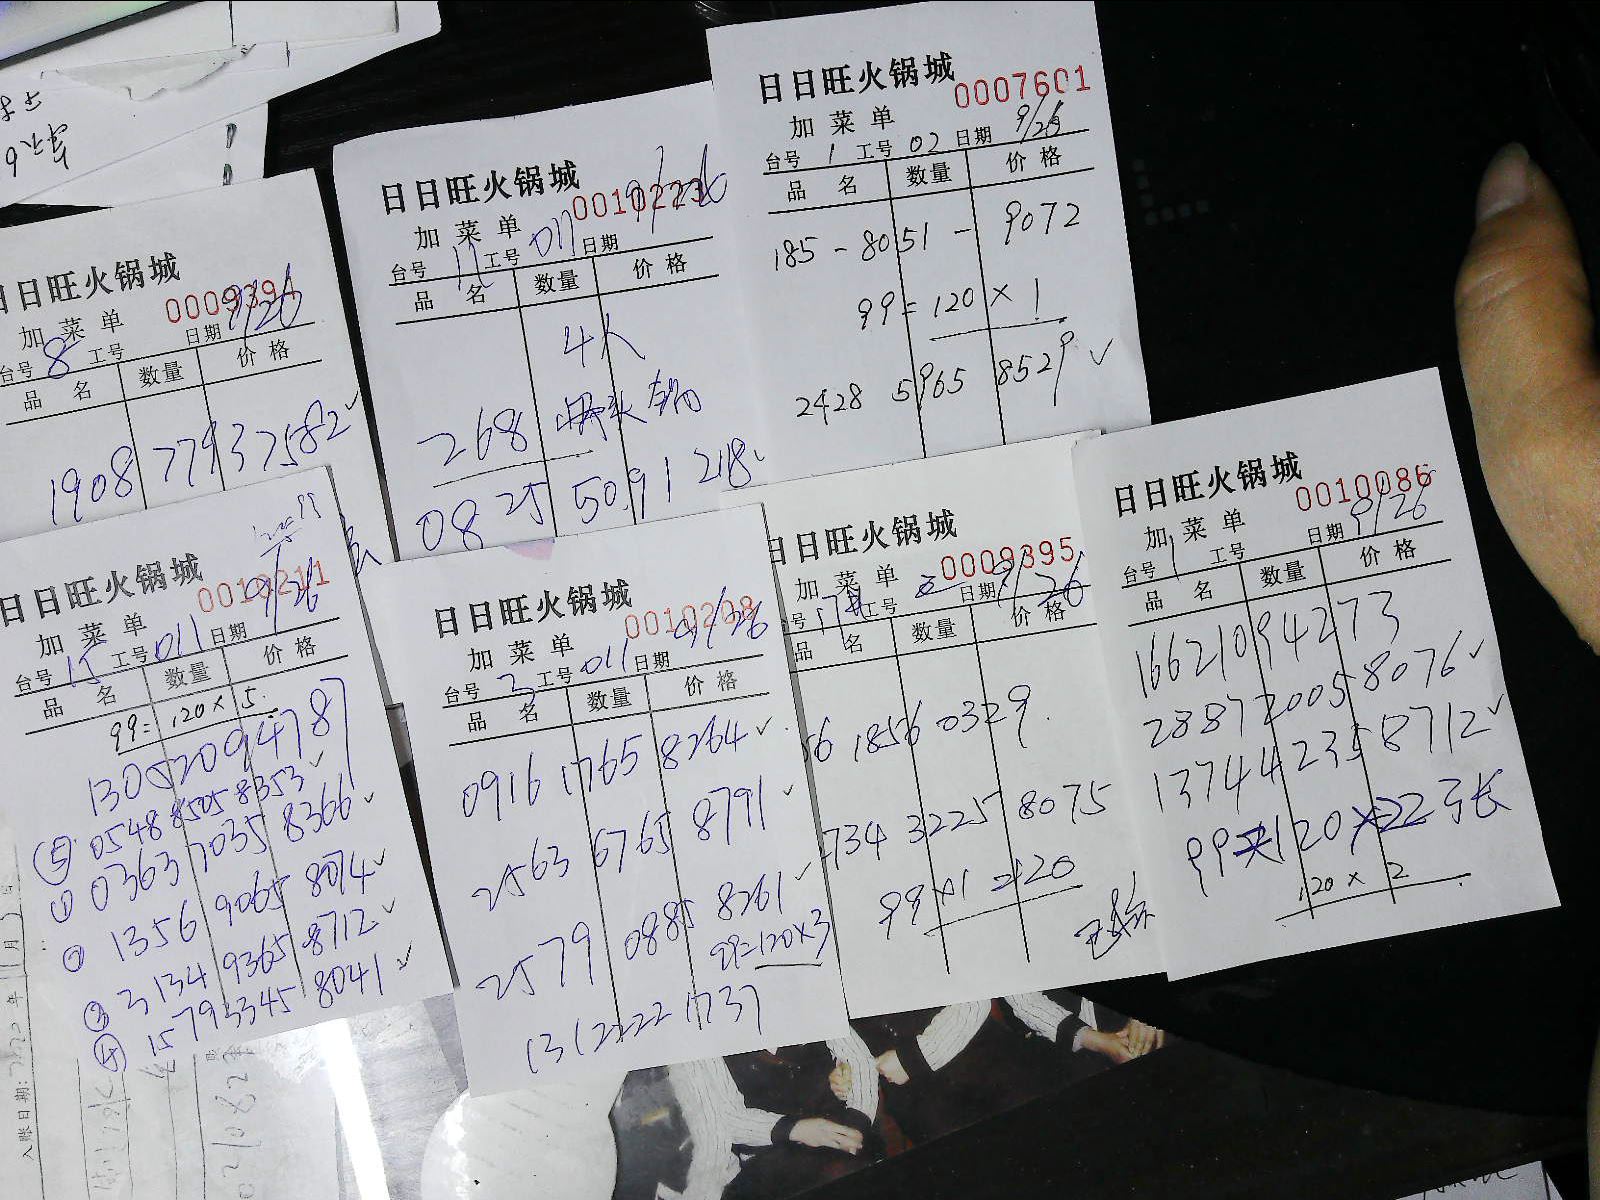 日日旺火锅城
0007601
加菜单
台号 1 工号 02 日期 9/26
品名 数量 价格
185-8051-9072
99=120×1
2428 5965 8529 ✓
日日旺火锅城
0010223
加菜单 9/26
台号 11 工号 011 日期
品名 数量 价格
4人
268 骨头锅
0825 5091 218
日日旺火锅城
0009394
加菜单
台号 8 工号 日期 9/26
品名 数量 价格
1908 7793 7582 ✓
日日旺火锅城
0010211
加菜单
台号 15 工号 011 日期 9/26
品名 数量 价格
99=120×5
13052094787
⑤ 0548 8505 8353 ✓
① 0363 7035 8366 ✓
② 1356 9065 8074 ✓
③ 3134 9365 8712 ✓
④ 1579 3345 8041 ✓
日日旺火锅城
0010208
加菜单
台号 3 工号 011 日期 9/26
品名 数量 价格
0916 1765 8264 ✓
2563 6765 8791 ✓
2579 0885 8261 ✓
99=120×3
13122221737
日日旺火锅城
0009395
加菜单
号 工号 日期 9/26
品名 数量 价格
56 1856 0329
734 3225 8075
99×1 120
日日旺火锅城
0010086
加菜单
台号 1 工号 日期 9/26
品名 数量 价格
16621094273
2887 2005 8076 ✓
1374 4235 8712 ✓
99 120×2
120×2
入账日期: